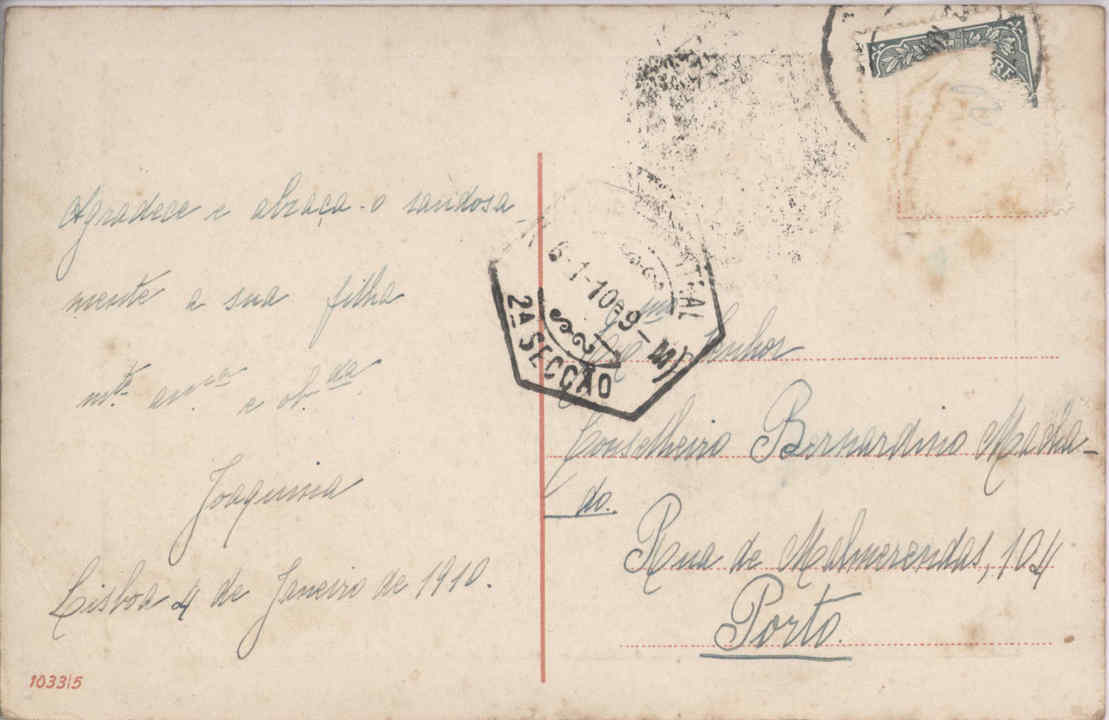 Agradece e abraça-o saudosa-
mente a sua filha
mto. am.ca e ob.da
Joaquina
Lisboa 4 de Janeiro de 1910.
1033/5
6-1-10
9-M
TRAL
2ª SECÇÃO
Exmo Senhor
Conselheiro Bernardino Macha-
do.
Rua de Malmerendas, 104
Porto.